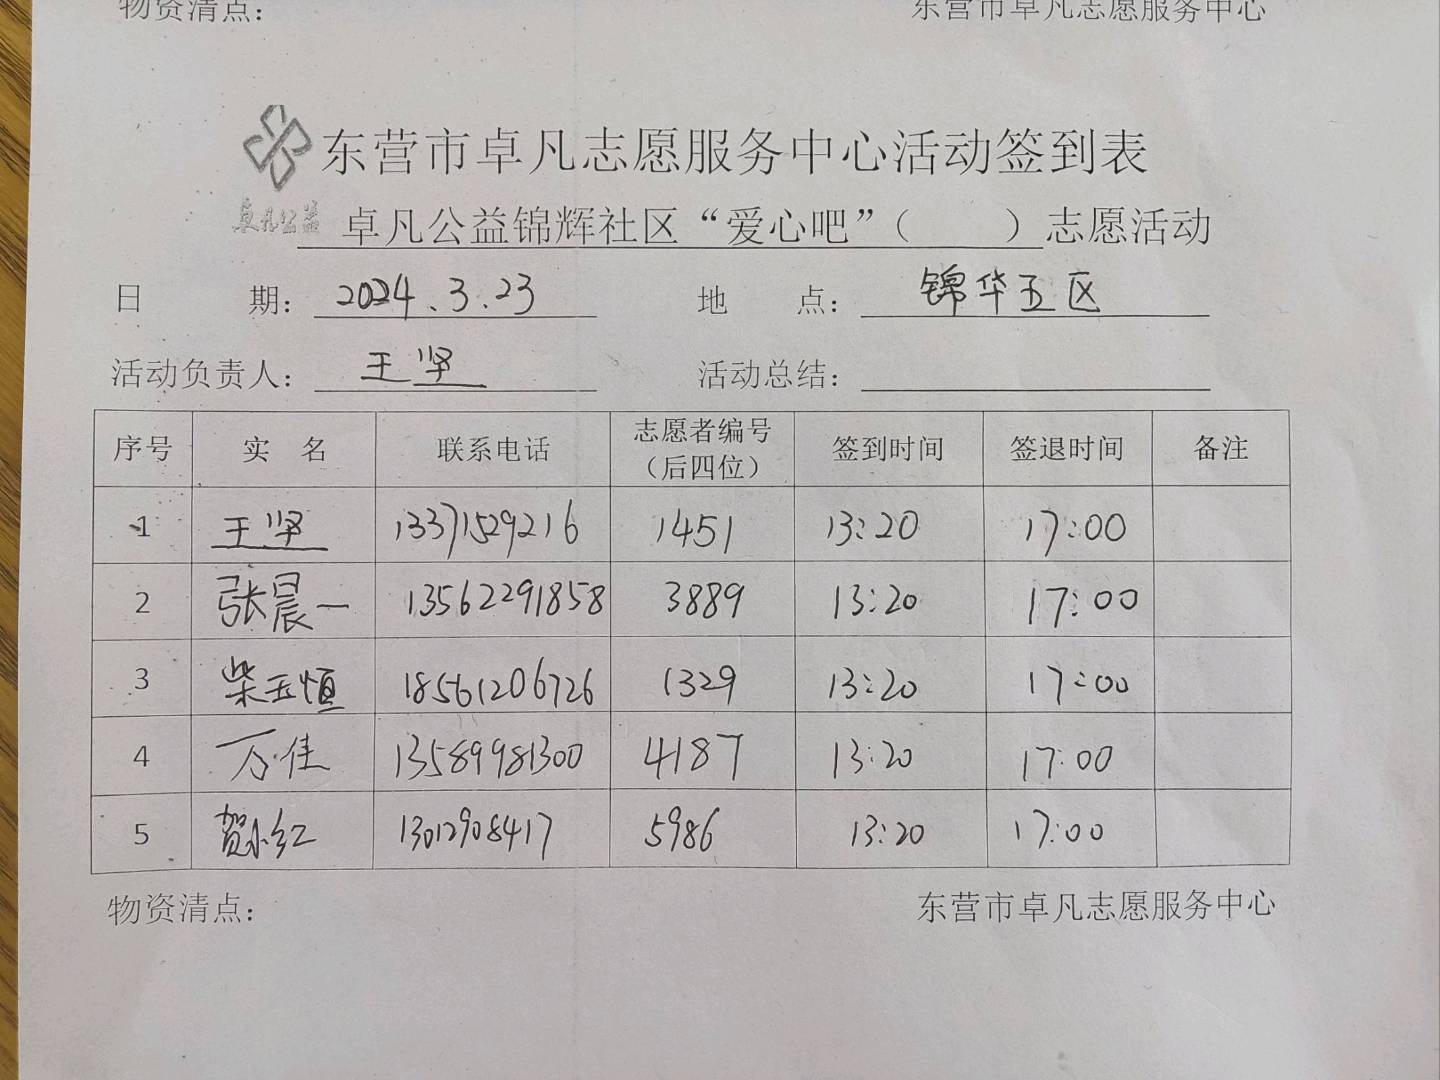 物资清点： 东营市卓凡志愿服务中心
东营市卓凡志愿服务中心活动签到表
卓凡公益 卓凡公益锦辉社区“爱心吧”（　　）志愿活动
日　　期： 2024.3.23 地　　点： 锦华五区
活动负责人： 王坚 活动总结：
序号 实　名 联系电话 志愿者编号（后四位） 签到时间 签退时间 备注
1 王坚 13371529216 1451 13:20 17:00
2 张晨一 13562291858 3889 13:20 17:00
3 柴玉恒 18561206726 1329 13:20 17:00
4 万佳 13589981300 4187 13:20 17:00
5 贺小红 13012908417 5986 13:20 17:00
物资清点： 东营市卓凡志愿服务中心